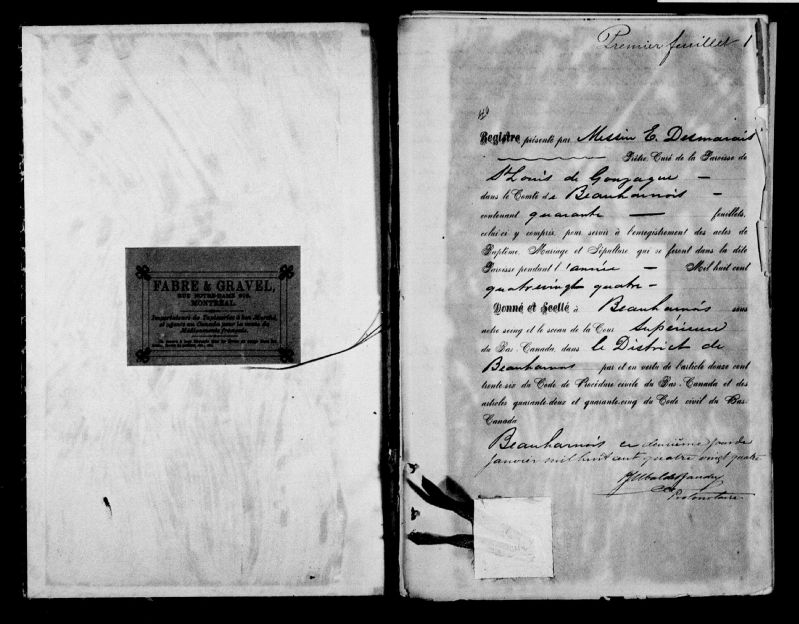 FABRE & GRAVEL,
RUE NOTRE-DAME
MONTREAL
Importateurs de Tapisseries à bon Marché,
et agents au Canada pour la vente de
Médicaments français.
Premier feuillet 1
Registre présenté par Messire E. Desmarais
Prêtre Curé de la Paroisse de
St Louis de Gonzague -
dans le Comté de Beauharnois -
contenant quarante — feuillets,
celui-ci y compris, pour servir à l'enregistrement des actes de
Baptême, Mariage et Sépulture qui se feront dans la dite
Paroisse pendant l'année - Mil huit cent
quatrevingt quatre -
Donné et Scellé à Beauharnois sous
notre seing et le sceau de la Cour Supérieure
du Bas-Canada, dans le District de
Beauharnois par et en vertu de l'article douze cent
trente-six du Code de Procédure civile du Bas-Canada et des
articles quarante-deux et quarante-cinq du Code civil du Bas-
Canada
Beauharnois ce deuxième jour de
janvier mil huit cent quatre vingt quatre
Protonotaire